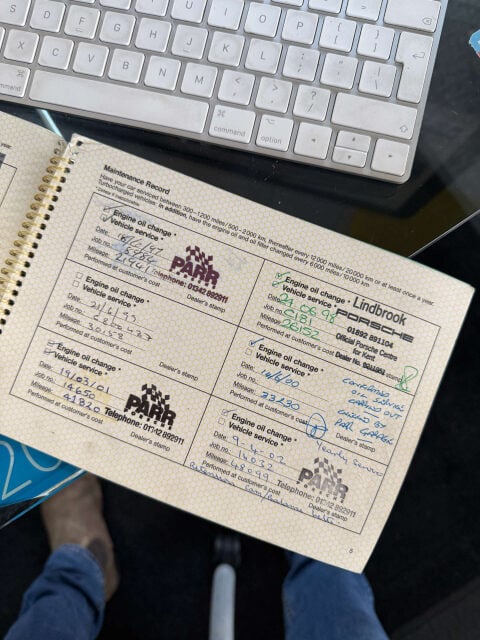 U I O P
S D F G H J K L
X C V B N M
command
command option
Maintenance Record
Have your car serviced between 300–1200 miles/500–2000 km, thereafter every 12000 miles/20000 km or at least once a year.
Turbocharged vehicles: in addition, have the engine oil and oil filter changed every 6000 miles/10000 km.
Engine oil change *
Vehicle service *
Date:
Job no.
Mileage:
Performed at customer's cost
PARR
Telephone: 01342 892911
Dealer's stamp
Engine oil change *
Vehicle service *
Date: 24.06.98
Job no. C181
Mileage: 26152
Performed at customer's cost
Lindbrook
PORSCHE
01892 891104
Official Porsche Centre
for Kent
Dealer No.
Engine oil change *
Vehicle service *
Date: 21/6/99
Job no.
Mileage: 30158
Performed at customer's cost
Dealer's stamp
Engine oil change *
Vehicle service *
Date:
Job no.
Mileage: 33230
Performed at customer's cost
OIL SERVICE
CARRIED OUT
PARR GARAGE
Dealer's stamp
Engine oil change *
Vehicle service *
Date: 19/03/01
Job no. 14650
Mileage: 41820
Performed at customer's cost
PARR
Telephone: 01342 892911
Dealer's stamp
Engine oil change *
Vehicle service *
Date: 9-4-02
Job no. 14032
Mileage: 48099
Performed at customer's cost
Yearly service
PARR
Telephone: 01342 892911
Dealer's stamp
5